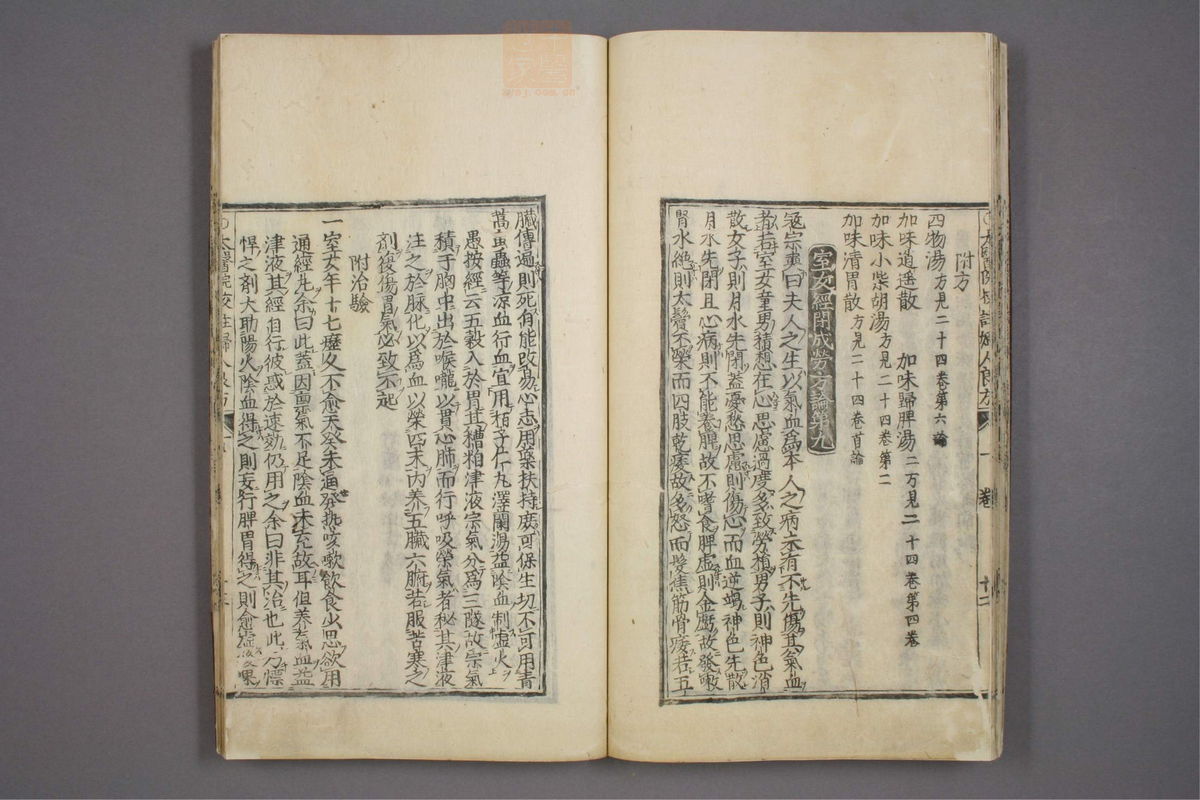 附方
四物湯方見二十四卷第六論
加味逍遥散　加味歸脾湯二方見二十四卷第四卷
加味小柴胡湯方見二十四卷第二
加味清胃散方見二十四卷首論
室女經閉成勞方論第九
寇宗奭曰夫人之生以氣血爲本人之病未有不先傷其氣血
者若室女童男積想在心思慮過度多致勞損男子則神色消
散女子則月水先閉蓋憂愁思慮則傷心而血逆竭神色先散
月水先閉且心病則不能養脾故不嗜食脾虛則金虧故發嗽
腎水絶則木氣不榮而四肢乾痿故多怒而髮焦筋骨痿若五
臟傳遍則死有能改易心志用藥扶持庶可保生切不可用青
蒿虻蟲等凉血行血宜用栢子仁丸澤蘭湯益陰血制虛火
愚按經云五穀入於胃其糟粕津液宗氣分爲三隧故宗氣
積于胸中出於喉嚨以貫心肺而行呼吸榮氣者秘其津液
注之於脉化以爲血以榮四末内养五臟六腑若服苦寒之
剂復傷胃氣必致不起
附治驗
一室女年十七瘰久不愈天癸未通發熱咳嗽飲食少思欲用
通經丸余曰此蓋因稟氣不足陰血未充故耳但养氣血益
津液其經自行彼惑於速効仍用之余曰非其治也此乃慓
悍之剂大助陽火陰血得之則妄行脾胃得之則愈虛後果
太醫院校註婦人良方
一卷
十二